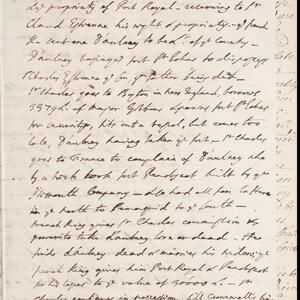 ye propriety of Port Royal - reserving to Sr
Claud Estienne his right of propriety - ye french
Kg sent one D'aulney to be Govr. of ye County -
D'aulney besieged fort St Johns to dispossess
Charles Estienne ye Son, ye father being dead -
Sr Charles goes to Boston in New England, borrows
3379£. of Major Gibbons & pawns fort St Johns
for security, fits out a vessel, but comes too
late, D'aulney having taken ye fort - Sr Charles
goes to France to complain of D'aulney who
by a trick took fort Penobscot built by ye
Plymouth Company - who had all from
in ye north to Pemaquid to ye South -
french King gives Sr Charles commission &
powers to take D'aulney live or dead - He
finds D'aulney dead & marries his widow; ye
french King gives him Port Royal & Penobscot
to ye value of 30000 £. - Sr
Charles continues in possession. Olr Cromwell